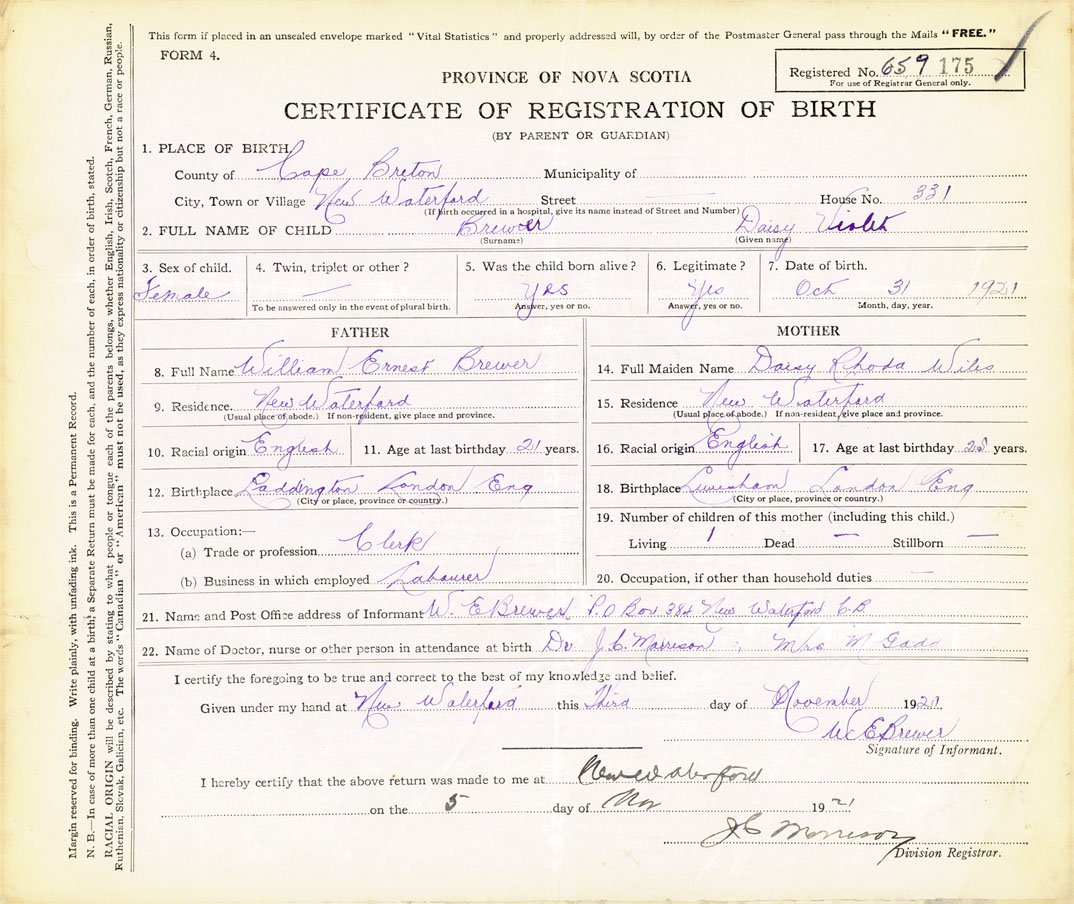 This form if placed in an unsealed envelope marked "Vital Statistics" and properly addressed will, by order of the Postmaster General pass through the Mails "FREE."
FORM 4.
Registered No. 659 175
For use of Registrar General only.
PROVINCE OF NOVA SCOTIA
CERTIFICATE OF REGISTRATION OF BIRTH
(BY PARENT OR GUARDIAN)
1. PLACE OF BIRTH,
County of Cape Breton Municipality of
City, Town or Village New Waterford Street — House No. 331
(If birth occurred in a hospital, give its name instead of Street and Number)
2. FULL NAME OF CHILD Brewer Daisy Violet
(Surname) (Given name)
3. Sex of child. Female
4. Twin, triplet or other? —
To be answered only in the event of plural birth.
5. Was the child born alive? Yes
Answer, yes or no.
6. Legitimate? Yes
Answer, yes or no.
7. Date of birth. Oct 31 1921
Month, day, year.
FATHER
8. Full Name William Ernest Brewer
9. Residence. New Waterford
(Usual place of abode.) If non-resident, give place and province.
10. Racial origin English 11. Age at last birthday 21 years.
12. Birthplace Paddington London Eng
(City or place, province or country.)
13. Occupation:—
(a) Trade or profession Clerk
(b) Business in which employed Labourer
MOTHER
14. Full Maiden Name Daisy Rhoda
15. Residence New Waterford
(Usual place of abode.) If non-resident, give place and province.
16. Racial origin English 17. Age at last birthday years.
18. Birthplace Lewisham London Eng
(City or place, province or country.)
19. Number of children of this mother (including this child.)
Living 1 Dead — Stillborn —
20. Occupation, if other than household duties —
21. Name and Post Office address of Informant W. E Brewer P.O Box 384 New Waterford C.B
22. Name of Doctor, nurse or other person in attendance at birth Dr J.C. Morrison ; Mrs M Gadd
I certify the foregoing to be true and correct to the best of my knowledge and belief.
Given under my hand at New Waterford this Third day of November 1921.
W. E Brewer
Signature of Informant.
I hereby certify that the above return was made to me at New Waterford
on the 5 day of Nov 1921
J C Morrison
Division Registrar.
Margin reserved for binding. Write plainly, with unfading ink. This is a Permanent Record.
N. B.—In case of more than one child at a birth, a Separate Return must be made for each, and the number of each, in order of birth, stated.
RACIAL ORIGIN will be described by stating to what people or tongue each of the parents belongs, whether English, Irish, Scotch, French, German, Russian,
Ruthenian, Slovak, Galician, etc. The words "Canadian" or "American" must not be used, as they express nationality or citizenship but not a race or people.